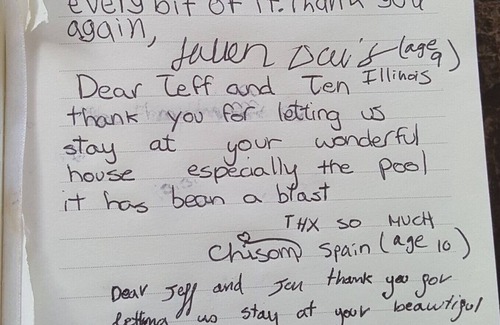 every bit of it. Thank you
again,
Davis (age 9)
Dear Jeff and Jen Illinois
thank you for letting us
stay at your wonderful
house especially the pool
it has bean a blast
THX SO MUCH
Chisom Spain (age 10)
Dear Jeff and Jen thank you for
letting us stay at your beautiful